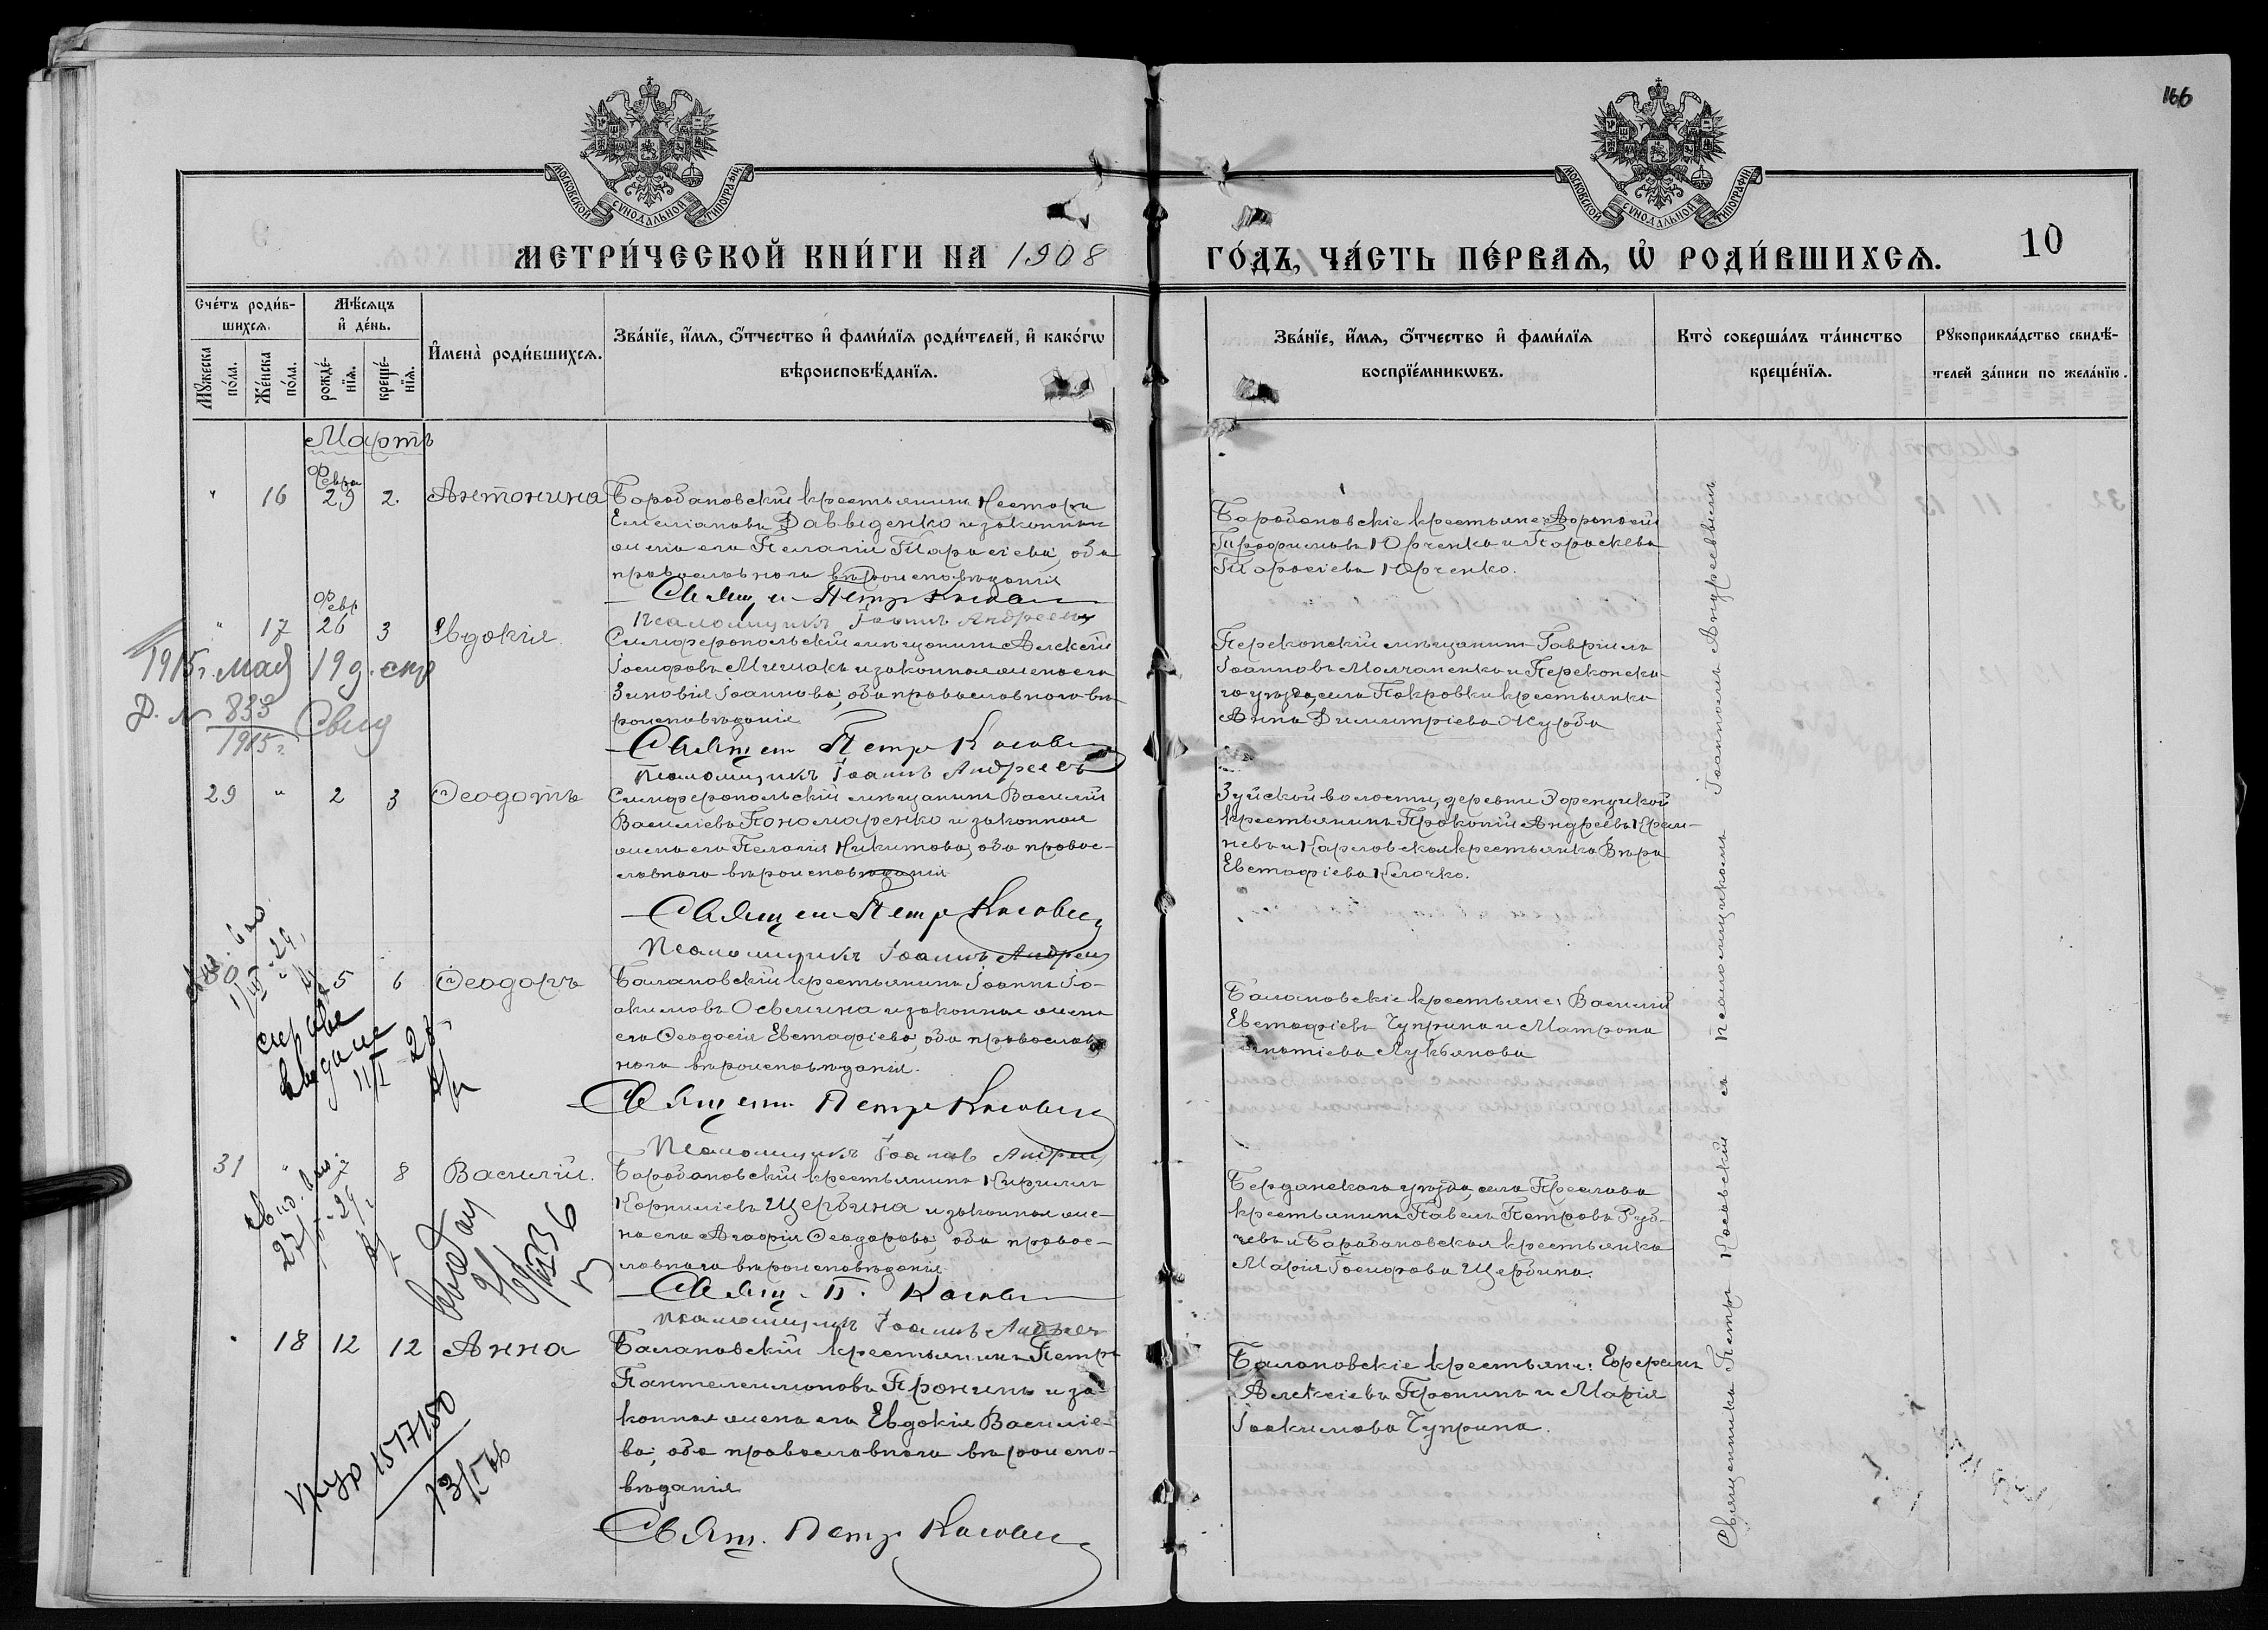 166
МОСКОВСКОЙ СѴНОДАЛЬНОЙ ТИПОГРАФІИ
МОСКОВСКОЙ СѴНОДАЛЬНОЙ ТИПОГРАФІИ
МЕТРИ́ЧЕСКОЙ КНИ́ГИ НА 1908
ГО́ДЪ, ЧА́СТЬ ПЕ́РВАѦ, Ѽ РОДИ́ВШИХСѦ.
10
Сче́тъ роди́в-
шихсѧ.
Мꙋжеска по́ла.
Же́нска по́ла.
Мѣ́сѧцъ
и҆ де́нь.
рожде́-
нїѧ.
креще́-
нїѧ.
И҆мена̀ роди́вшихсѧ.
Зва́нїе, и҆́мѧ, ѻ҆́тчество и҆ фами́лїѧ роди́телей, и҆ како́гѡ
вѣроисповѣ́данїѧ.
Зва́нїе, и҆́мѧ, ѻ҆́тчество и҆ фами́лїѧ
воспрїе́мникѡвъ.
Кто̀ соверша́лъ та́инство
креще́нїѧ.
Рꙋкоприкла́дство свидѣ́-
телей за́писи по жела́нїю.
Мартъ
" 16 Февра 29 2. Антонина
Барабановскій крестьянинъ Несторъ
Емеліановъ Даввиденко и законная
жена его Пелагія Тарасіева, оба
православнаго вѣроисповѣданія
Священ Петръ Косовскій
Псаломщикъ Іоаннъ Андреевъ
Барабановскіе крестьяне:
Трофимовъ Юрченко и Параскева
Тарасіева Юрченко.
" 17 Февр 26 3 Евдокія
Симферопольскій мѣщанинъ Алексѣй
Іосифовъ Мишакъ и законная жена его
Зиновія Іоаннова, оба православнаго вѣ-
роисповѣданія
Священ Петръ Косовскій
Псаломщикъ Іоаннъ Андреевъ
Перекопскій мѣщанинъ Гавріилъ
Іоанновъ Молчаненко и Перекопска-
го уѣзда, села Покровки крестьянка
Анна Димитріева Журба
1915 г. мая 19 д.
Д. № 833
1915 г.
Свид
29 " 2 3 Ѳеодотъ
Симферопольскій мѣщанинъ Василій
Василіевъ Пономаренко и законная
жена его Пелагія Никитова, оба правос-
лавнаго вѣроисповѣданія
Священ Петръ Косовскій
Псаломщикъ Іоаннъ Андреевъ
Зуйской волости, деревни
крестьянинъ Прокопій Андреевъ
и Карловская крестьянка Вѣра
Евстафіева Клочко.
30 " 5 6 Ѳеодоръ
Балановскій крестьянинъ Іоаннъ Іо-
акимовъ Осьмина и законная жена
его Ѳеодосія Евстафіева, оба православ-
наго вѣроисповѣданія.
Священ Петръ Косовскій
Псаломщикъ Іоаннъ Андреевъ
Балановскіе крестьяне: Василій
Евстафіевъ Чуприна и Матрона
Игнатіева Лукьянова
31 " 8 Василій.
Барабановскій крестьянинъ Кириллъ
Корниліевъ Щербина и законная же-
на его Агафія Ѳеодорова, оба правос-
лавнаго вѣроисповѣданія
Свящ. П. Косовскій
Псаломщикъ Іоаннъ Андреевъ
Бердянскаго уѣзда, села Преслава
крестьянинъ Павелъ Петровъ Руб-
чевъ и Барабановская крестьянка
Марія Іосифова Щербина.
" 18 12 12 Анна
Балановскій крестьянинъ Петръ
Пантелеимоновъ Пронинъ и за-
конная жена его Евдокія Василіе-
ва, оба православнаго вѣроиспо-
вѣданія
Свящ. Петръ Косовскій
Балановскіе крестьяне: Ефремъ
Алексіевъ Пронинъ и Марія
Іоакимова Чуприна.
1517180
13/V 46
Священникъ Петръ Косовскій съ псаломщикомъ Іоанномъ Андреевымъ